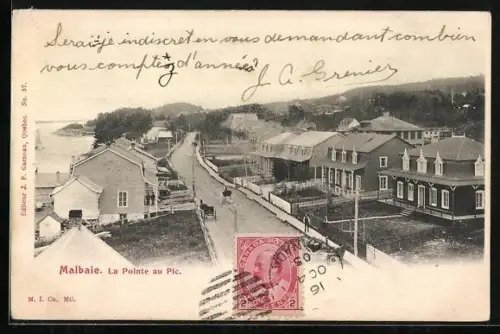 Serai je indiscret en vous demandant combien
vous comptez d'années?
J. A. Grenier
Editeur J. P. Garneau, Quebec. No. 57.
Malbaie. La Pointe au Pic.
M. I. Co., Mtl.
CANADA POSTAGE
2 2
16
OC 4
05